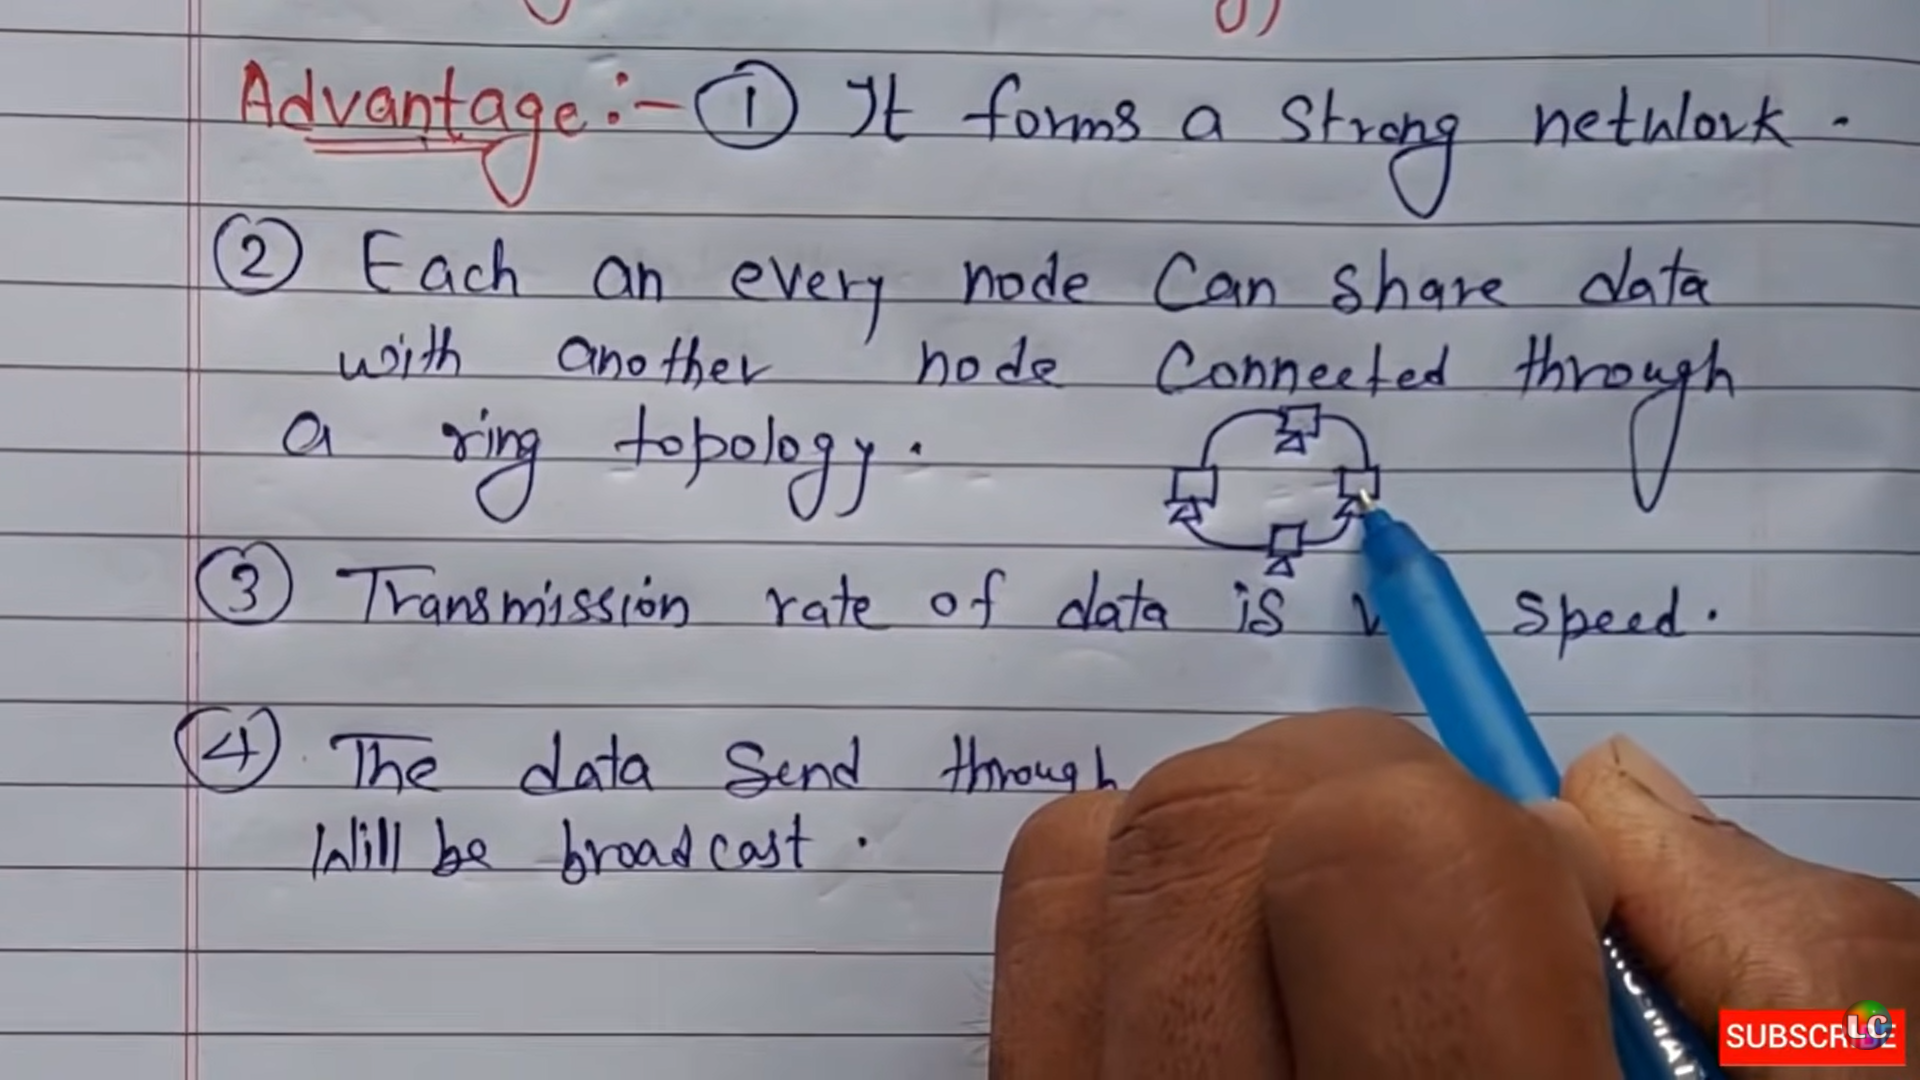 Advantage:- ① It forms a strong network.
② Each an every node can share data
with another node connected through
a ring topology.
③ Transmission rate of data is speed.
④ The data send through
will be broadcast.
SUBSCRIBE
LC